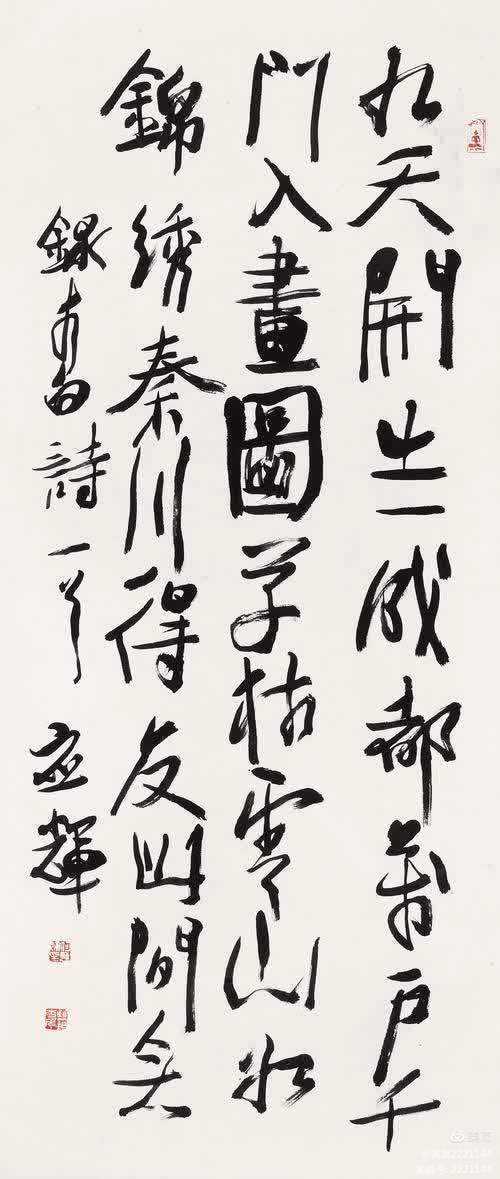 九天開出一成都萬户千
門入畫圖草樹雲山如
錦綉秦川得及此間無
錄李白詩一首 應輝